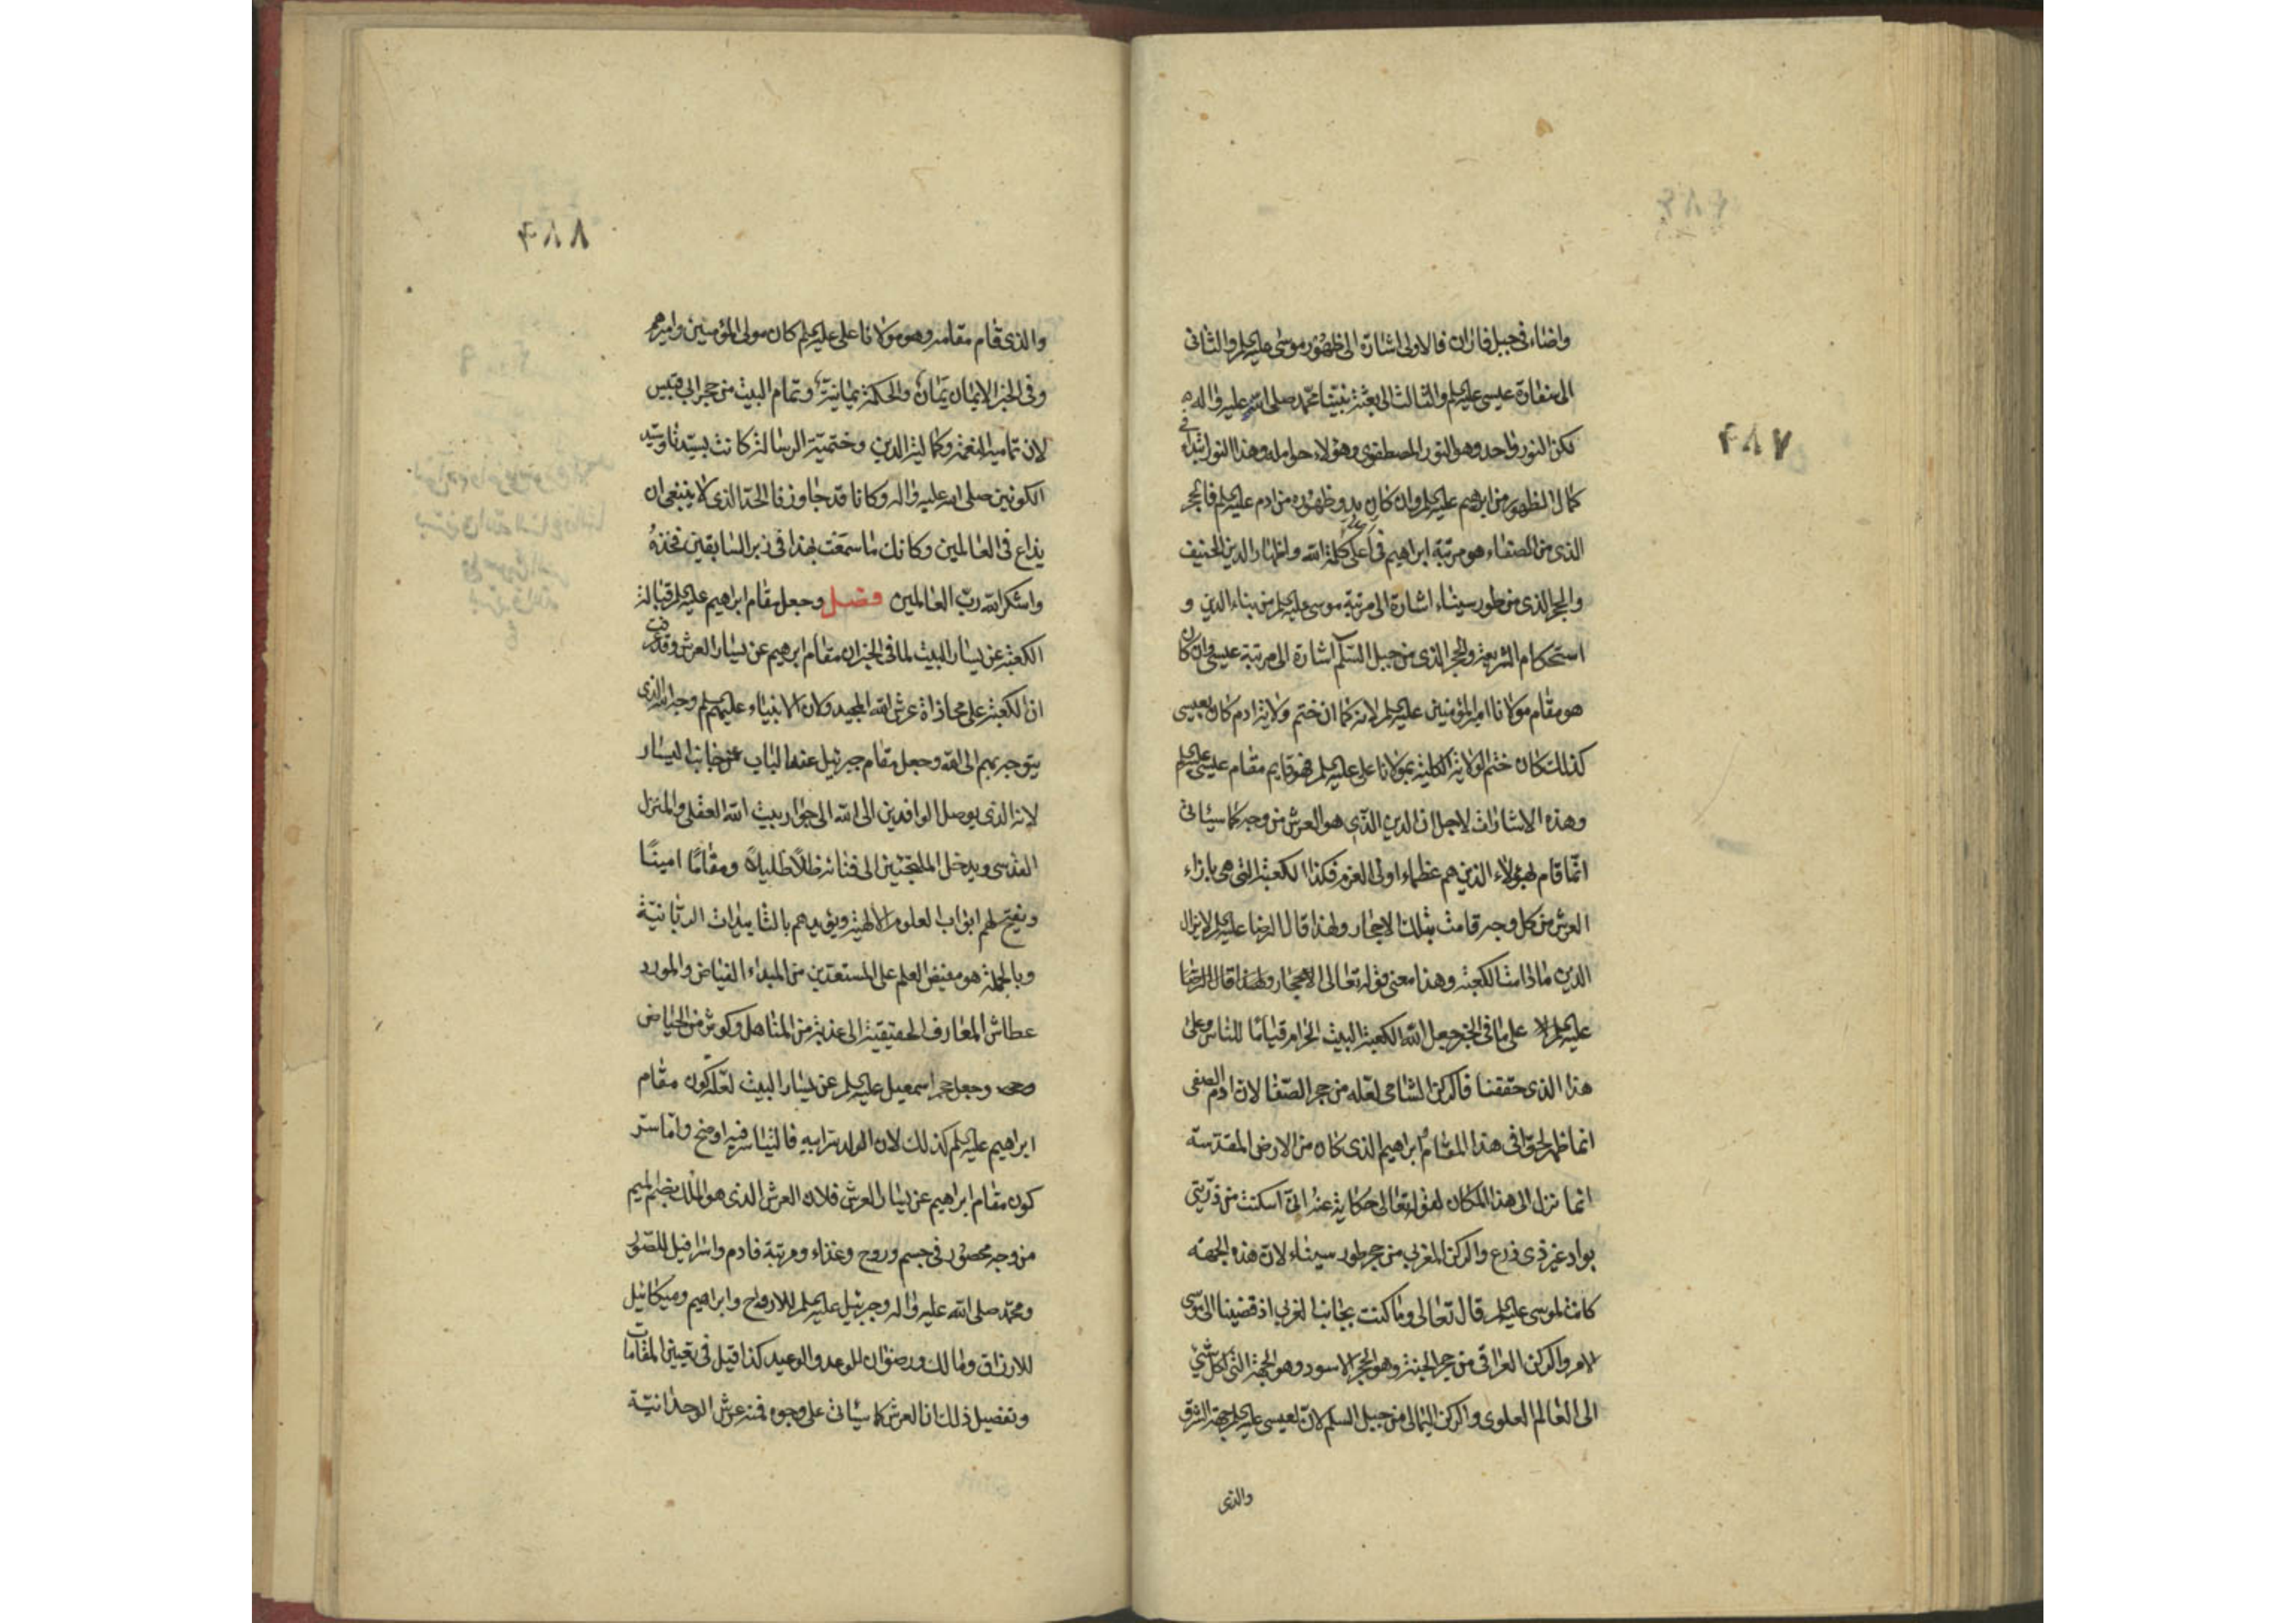 واضاء فى جبل فاران فالاولى اشارة الى ظهور موسى عليه السلم والثانى
الى منارة عيسى عليه السلم والثالث الى بعثة نبينا محمد صلى الله عليه واله
لكن النور واحد وهو النور المصطفوى وهؤلاء حوامله وهذا النور ابتداء فى
كمال الظهور من ابرهيم عليه السلم وان كان بدو ظهوره من ادم عليه السلم فالحجر
الذى من الصفاء هو مرتبة ابراهيم فى اعلى كلمة الله واظهار الدين الحنيف
والحجر الذى من طور سيناء اشارة الى مرتبة موسى عليه السلم من بناء الدين و
استحكام الشريعة والحجر الذى من جبل السلم اشارة الى مرتبة عيسى وان كان
هو مقام مولانا امير المؤمنين عليه السلم لانه كما ان ختم ولاية ادم كان بعيسى
كذلك كان ختم الولاية الكلية بمولانا على عليه السلم فهو قايم مقام عيسى عليه السلم
وهذه الاشارات لاجل ان الدين الذى هو العرش من وجه كما سيئاتى
انما قام بهؤلاء الذين هم عظماء اولى العزم فكذا الكعبة التى هى بازاء
العرش من كل وجه قامت بتلك الاحجار ولهذا قال الرضا عليه السلم لا يزال
الدين ما دامت الكعبة وهذا معنى قوله تعالى الاحجار ولهذا قال الرضا
عليه السلم لا على ما فى الخبر جعل الله الكعبة البيت الحرام قياما للناس وعلى
هذا الذى حققنا فالركن الشامى لعله من حجر الصفا لان ادم الصفى
انما ظهر لحق فى هذا المقام وابراهيم الذى كان من الارض المقدسة
انما نزل الى هذا المكان لقوله تعالى حكاية عنه انى اسكنت من ذريتى
بواد غير ذى زرع والركن المغربى من حجر طور سيناء لان هذه الجهة
كانت لموسى عليه السلم قال تعالى وما كنت بجانب الغربى اذ قضينا الى موسى
الامر والركن العراقى من حجر الجنة وهو الحجر الاسود وهو الجهة التى لكل شئ
الى العالم العلوى والركن اليمانى من جبل السلم لان لعيسى عليه السلم جهة الشرق
والذى
٧٨٩
٨٨٩
والذى قام مقامه وهو مولانا على عليه السلم كان مولى المؤمنين واميرهم
وفى الخبر الايمان يمان والحكمة يمانية وتمام البيت من حجر ابى قبيس
لان تمامية النعمة وكمالية الدين وختمية الرسالة كانت بسيدنا وسيد
الكونين صلى الله عليه واله وكانا قد جاوزنا الحد الذى لا ينبغى ان
يذاع فى العالمين وكانك ما سمعت بهذا فى زبر السابقين فخذه
واشكر الله رب العالمين فصل وجعل مقام ابراهيم عليه السلم قبالة
الكعبة عن يسار البيت لما فى الخبر ان مقام ابرهيم عن يسار العرش وقد عرفت
ان الكعبة على محاذاة عرش الله المجيد ولان الانبياء عليهم السلم وجه الله الذى
يتوجه بهم الى الله وجعل مقام جبرئيل عند الباب عن جانب اليسار
لانه الذى يوصل الوافدين الى الله الى جوار بيت الله العقلى والمنزل
القدسى ويدخل الملتجئين الى فنائه ظلا ظليلا ومقاما امينا
ويفتح لهم ابواب العلوم الالهية ويؤيدهم بالتاييدات الربانية
وبالجملة هو مفيض العلم على المستعدين من المبداء الفياض والمورد
عطاش المعارف الحقيقية الى عذبة من المناهل وكوثر من الحياض
وجعل حجر اسمعيل عليه السلم عن يسار البيت لعله كون مقام
ابراهيم عليه السلم كذلك لان الولد سر ابيه فاليسار فيه اوضح واما سر
كون مقام ابراهيم عن يسار العرش فلان العرش الذى هو الملك بضم الميم
من وجه محصور فى جسم وروح وغذاء ومرتبة فادم واسرافيل للصور
ومحمد صلى الله عليه واله وجبرئيل عليه السلم للارواح وابراهيم وميكائيل
للارزاق ومالك ورضوان للوعد والوعيد كذا قيل فى تعيين المقامات
وتفصيل ذلك ان العرش كما سيئاتى على وجوه فمنه عرش الوحدانية